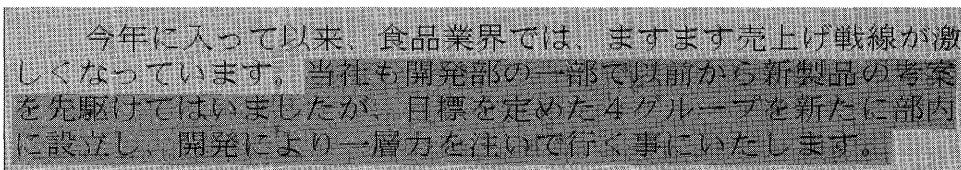 今年に入って以来、食品業界では、ますます売上げ戦線が激
しくなっています。当社も開発部の一部で以前から新製品の考案
を先駆けてはいましたが、目標を定めた4グループを新たに部内
に設立し、開発により一層力を注いで行く事にいたします。